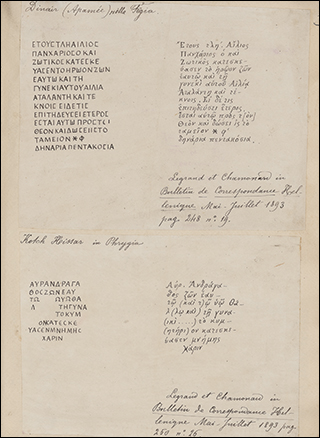 Dinair (Apamée) nella Frigia
ΕΤΟΥΣΤΛΗΑΙΛΙΟΣ
ΠΑΝΧΑΡΙΟΣΟΚΑΙ
ΖΩΤΙΚΟΣΚΑΤΕΣΚΕ
ΥΑΣΕΝΤΟΗΡΩΟΝΖΩΝ
ΕΑΥΤΩΚΑΙΤΗ
ΓΥΝΕΚΙΑΥΤΟΥΑΙΛΙΑ
ΑΤΑΛΑΝΤΗΚΑΙΤΕ
ΚΝΟΙΣΕΙΔΕΤΙΣ
ΕΠΙΤΗΔΕΥΣΕΙΕΤΕΡΟΣ
ΕΣΤΑΙΑΥΤΩΠΡΟΣΤ
ΘΕΟΝΚΑΙΔΩΣΕΙΕΙΣΤΟ
ΤΑΜΕΙΟΝ ✱ Φ
ΔΗΝΑΡΙΑΠΕΝΤΑΚΟΣΙΑ
Ἔτους τλη΄. Αἴλιος
Πανχάριος ὁ καὶ
Ζωτικὸς κατεσκε-
ύασεν τὸ ἡρῷον ζῶν
ἑαυτῷ καὶ τῇ
γυνεκὶ αὐτοῦ Αἰλίᾳ
Ἀταλάντῃ καὶ τέ-
κνοις. Εἰ δέ τις
ἐπιτηδεύσει ἕτερος
ἔσται αὐτῷ πρὸς τ(ὸν)
Θεὸν καὶ δώσει ἰς τὸ
ταμεῖον ✱ φ΄
δηνάρια πεντακόσια.
Legrand et Chamonard in
Bulletin de Correspondance Hel-
lenique Mai-Juillet 1893
pag. 248 n.º 19.
Kotch Hissar in Phrygia
ΑΥΡΑΝΔΡΑΓΑ
ΘΟΣΖΩΝΕΑΥ
ΤΗΓΥΝΑ
ΤΟΚΥΜ
ΟΝΚΑΤΕΣΚΕ
ΥΑΣΕΝΜΝΗΜΗΣ
ΧΑΡΙΝ
Αὐρ. Ἀνδράγα-
θος ζῶν ἑαυ-
τῷ (καὶ τ)ῷ ὑῷ Θα-
τῇ γυνα-
(ικὶ .....) τὸ κυμ-
(ητήρι)ον κατεσκε-
ύασεν μνήμης
χάριν
Legrand et Chamonard in
Bulletin de Correspondance Hel-
lénique Mai-Juillet 1893 pag.
250 n.º 26